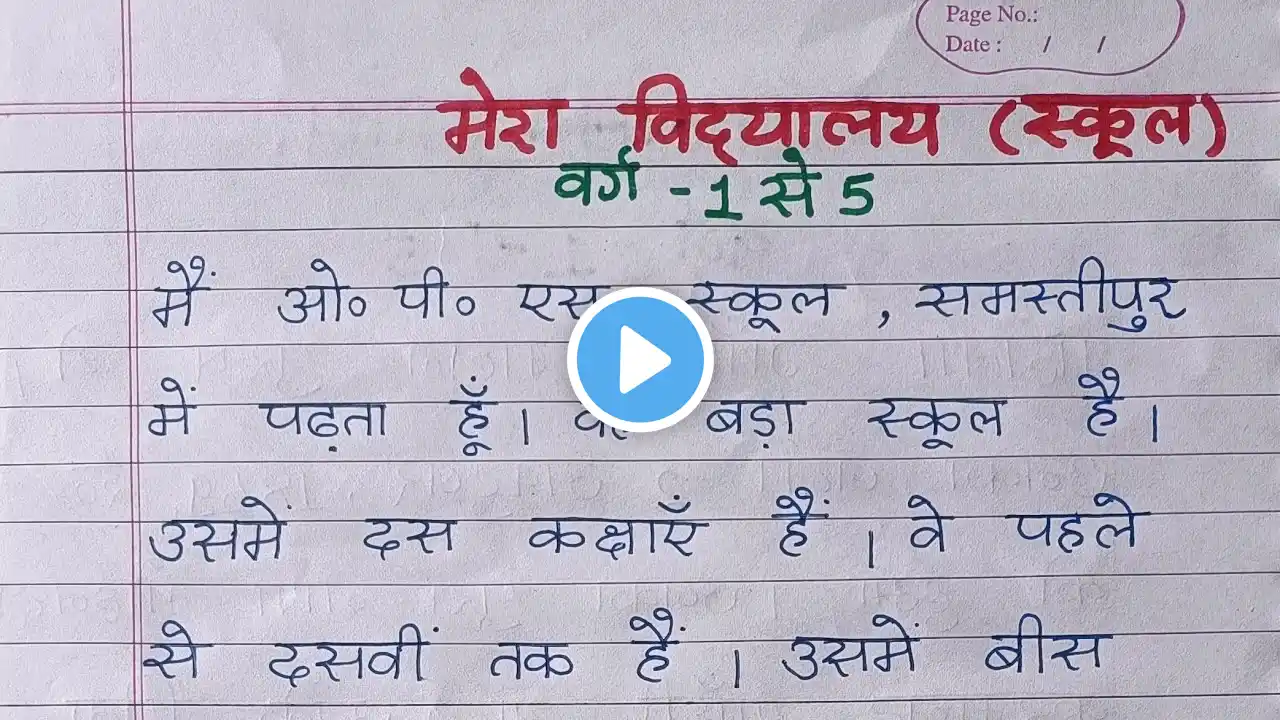 Page No.:
Date : / /
मेरा विद्यालय (स्कूल)
वर्ग - 1 से 5
मैं ओ॰ पी॰ एस स्कूल , समस्तीपुर
में पढ़ता हूँ । बड़ा स्कूल है ।
उसमें दस कक्षाएँ हैं । वे पहले
से दसवीं तक हैं । उसमें बीस